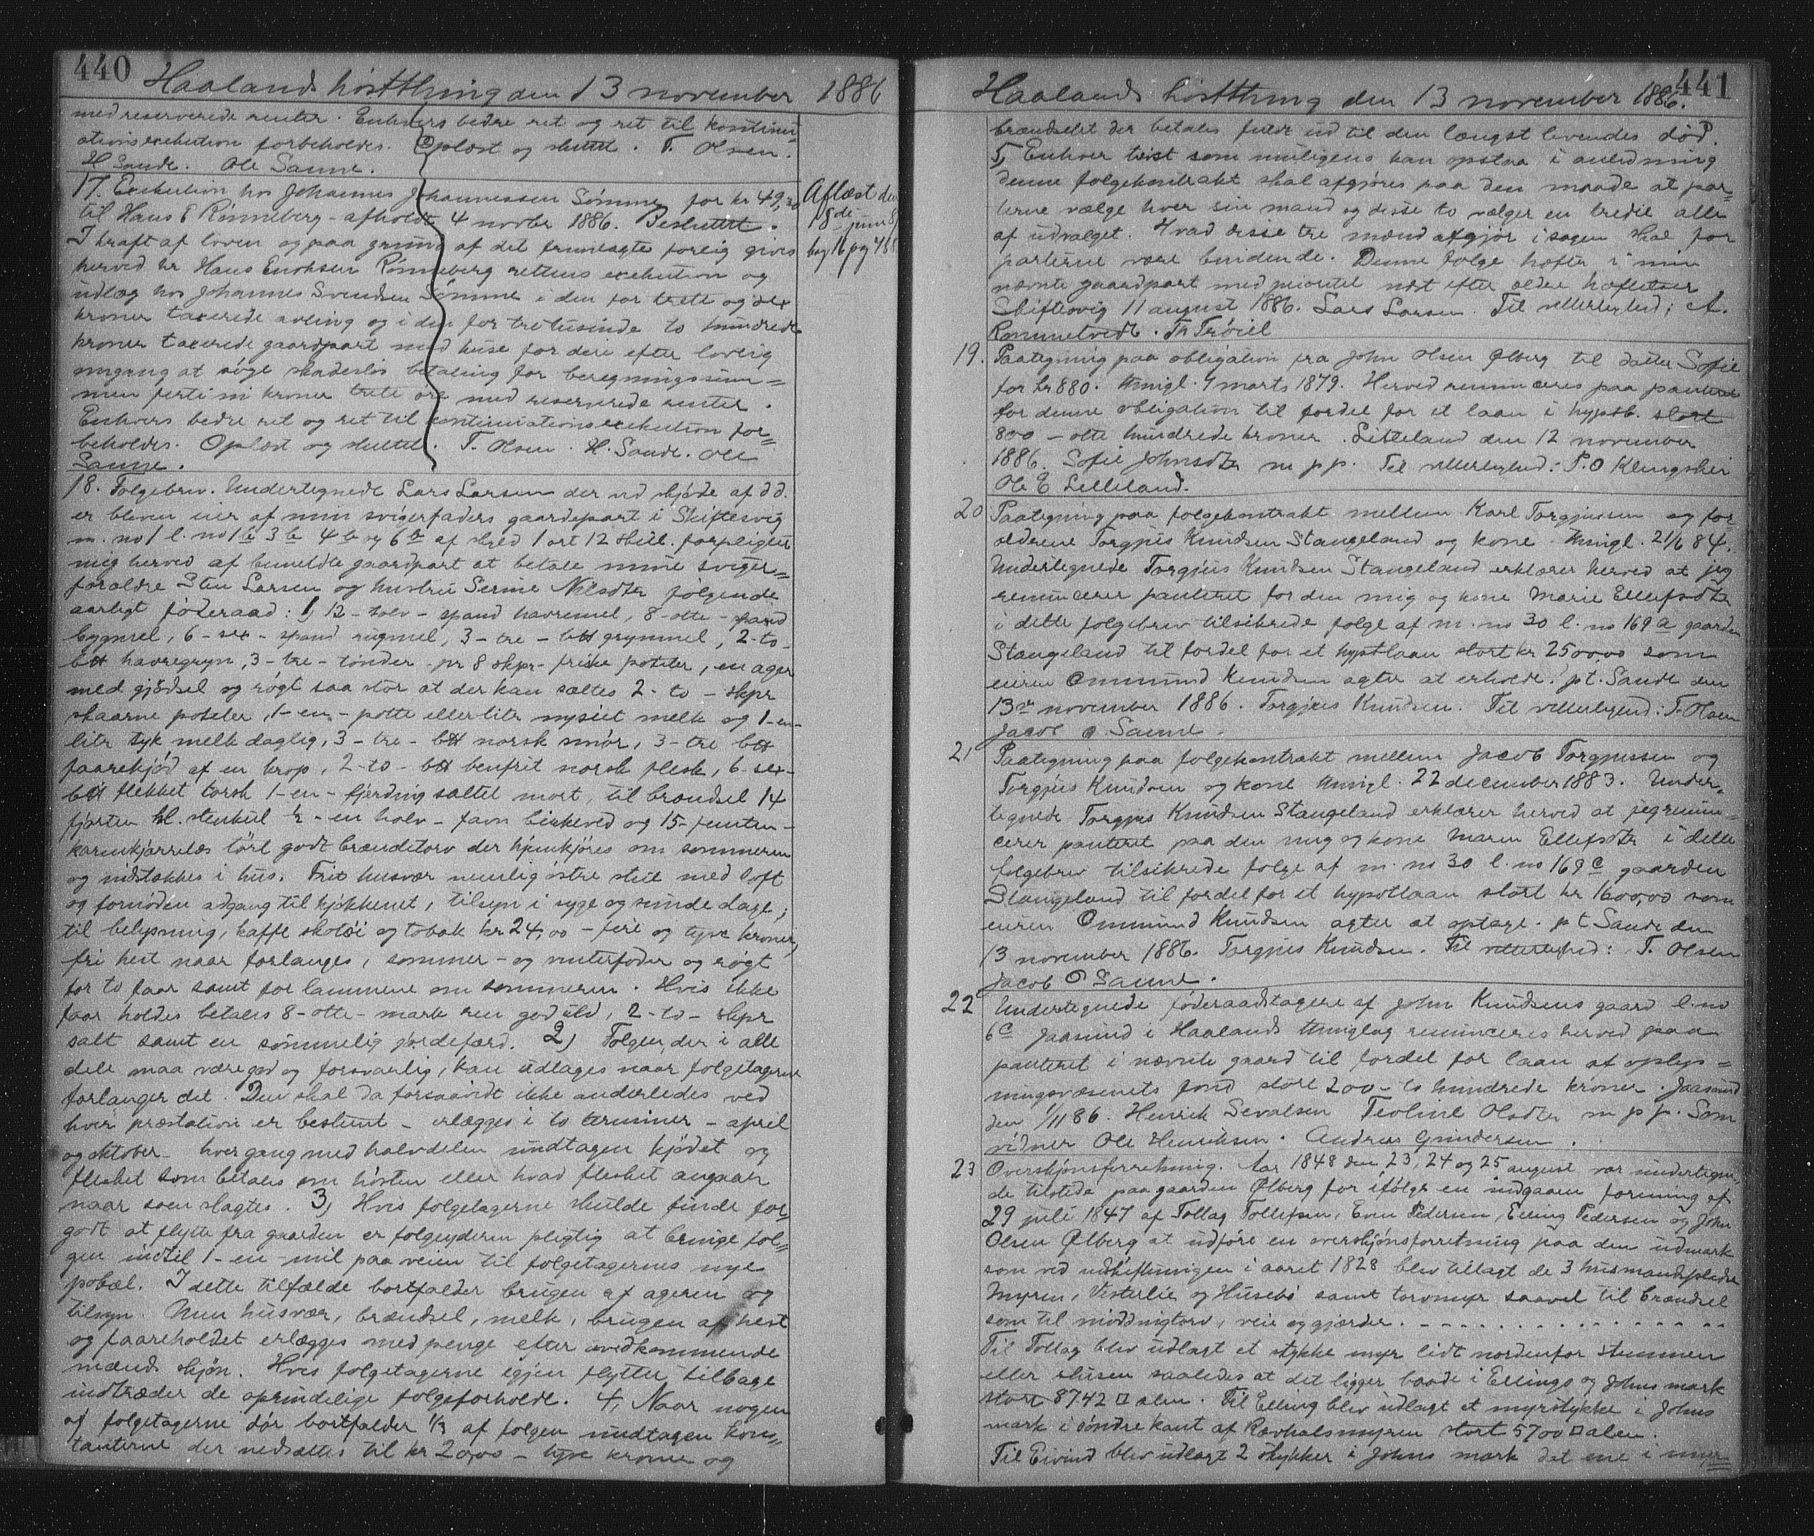 440
Haalands höstthing den 13 november 1886
med reserverede renter. Enhvers bedre ret og ret til kontinu-
ationsexekution forbeholdes. Oplæst og sluttet. T. Olsen.
H Sande. Ole Sanne.
17. Exekution hos Johannes Johannessen Sømme for kr 49,30
til Hans E Rønneberg - afholdt 4 novbr 1886. Besluttet.
I kraft af loven og paa grund af det fremlagte forlig gives
herved hr Hans Enoksen Rønneberg rettens exekution og
udlæg hos Johannes Svendsen Sømme i den for trette og sex
kroner taxerede avling og i den for tretusinde to hundrede
kroner taxerede gaardpart med huse for deri efter lovlig
omgang at søge skadesløs betaling for beregningssum=
men førti ni kroner trete øre med reserverede renter.
Enhvers bedre ret og ret til kontinuationsexekution for=
beholdes. Oplæst og sluttet. T. Olsen. H. Sande. Ole
Sanne.
Aflæst den
18de juni 89
bog 16 pag 488
18. Folgebrev. Undertegnede Lars Larsen der ved skjøde af d.d.
er bleven eier af min svigerfaders gaardepart i Skiftesvig
m. no 1 l. no 1b 3b 4b og 6b af skyld 1 ort 12 skill. forpligter
mig herved af bemeldte gaardpart at betale mine sviger=
forældre Sten Larsen og hustru Serine Nilsdtr følgende
aarligt føderaad: 1, 12 - tolv - spand havremel, 8 - otte - spand
bygmel, 6 - sex - spand rugmel, 3 - tre - btt grynmel, 2 - to -
btt havregryn, 3 - tre - tönder - pr 8 skpr - friske poteter, en ager
med gjødsel og røgt saa stor at der kan sættes 2 - to - skpr
skaarne poteter, 1 - en - potte eller liter nysiet melk og 1 - en -
liter tyk melk daglig, 3 - tre - btt norsk smør, 3 - tre btt
faarekjød af en krop, 2 - to - btt benfrit norsk flesk, 6 - sex -
btt flekket torsk 1 - en - fjerding saltet mort, til brændsel 14
fjorten hl. stenkul ½ - en halv - favn birkeved og 15 - femten -
karmkjærrelæs tørt godt brændetorv der hjemkjøres om sommeren
og indstakkes i hus. Frit husvær nemlig østre stue med loft
og fornøden adgang til kjøkkenet, tilsyn i syge og sunde dage;
til belysning, kaffe skotøi og tobak kr 24,00 - fire og tyve kroner,
fri hest naar forlanges, sommer - og vinterfoder og røgt
for to faar samt for lammene om sommeren. Hvis ikke
faar holdes betales 8 - otte - mark ren god uld, 2 - to - skpr
salt samt en sømmelig jordefærd. 2, Folgen, der i alle
dele maa være god og forsvarlig, kan udtages naar folgetagerne
forlanger det. Den skal da forsaavidt ikke anderledes ved
hver præstation er bestemt - erlægges i to terminer - april
og oktober - hver gang med halvdelen undtagen kjødet og
flesket som betales om hösten eller hvad flesket angaar
naar soen slagtes. 3, Hvis folgetagerne skulde finde for=
godt at flytte fra gaarden er folgeyderen pligtig at bringe fol=
gen indtil 1 - en - mil paa veien til folgetagernes nye
pobæl. I dette tilfælde bortfalder brugen af ageren og
tilsyn. Men husvær, brændsel, melk, brugen af hest
og faareholdet erlægges med penge efter uvedkommende
mænds skjøn. Hvis folgetagerne igjen flytter tilbage
indtræder de oprindelige folgeforholde. 4, Naar nogen
af folgetagerne dør bortfalder ⅓ af folgen undtagen kon=
tanterne der nedsættes til kr 20,00 - tyve kroner og
441
Haalands höstthing den 13 november 1886.
brændselet der betales fuldt ud til den længst levendes död.
5, Enhver tvist som muligens kan opstaa i anledning
denne folgekontrakt skal afgjøres paa den maade at par=
terne vælge hver sin mand og disse to vælger en tredie alle
af udvalget. Hvad disse tre mænd afgjør i sagen skal for
parterne være bindende. Denne folge hæfter i min
nævnte gaardpart med prioritet næst efter ældre hæftelser
Skiftesvig 11 august 1886. Lars Larsen. Til vitterlighed: A.
Rommetvedt. Th Trøiel
19. Paategning paa obligation fra John Olsen Ølberg til datter Sofie
for kr 880. thingl. 4 marts 1879. Herved renunceres paa panteret
for denne obligation til fordel for et laan i hypotb. stort
800 - otte hundrede kroner. Litteland den 12 november
1886. Sofie Johnsdtr m p p. Til vitterlighed: P. O Klungsheir
Ole E Lilleland.
20 Paategning paa folgekontrakt mellem Karl Torgjussen og for=
ældrene Torgjus Knudsen Stangeland og kone. thingl. 21/6 84.
Undertegnede Torgjus Knudsen Stangeland erklærer herved at jeg
renuncerer panteret for den mig og kone Marie Ellefsdtr
i dette folgebrev tilsikrede folge af m. no 30 l. no 169a gaarden
Stangeland til fordel for et hypotlaan stort kr 2500,00 som
eieren Ommund Knudsen agter at erholde. pt. Sande den
13de november 1886. Torgjus Knudsen. Til vitterlighed: T. Olsen
Jacob O Sanne.
21 Paategning paa folgekontrakt mellem Jacob Torgjussen og
Torgjus Knudsen og kone thingl. 22 december 1883. Under=
tegnede Torgjus Knudsen Stangeland erklærer herved at jeg renun=
cerer panteret paa den mig og kone Maren Ellefsdtr i dette
folgebrev tilsikrede folge af m. no 30 l. no 169c gaarden
Stangeland til fordel for et hypotlaan stort kr 1600,00 som
eieren Ommund Knudsen agter at optage. p t Sande den
13 november 1886. Torgjus Knudsen. Til vitterlighed: T. Olsen
Jacob O Sanne.
22 Undertegnede føderaadstagere af John Knudsens gaard l. no
6c Jaasund i Haalands thinglag renunceres herved paa
panteret i nævnte gaard til fordel for laan af oplys=
ningsvæsenets fond stort 200 - to hundrede kroner. Jaasund
den 1/11 86. Henrik Sevalsen Teoline Olsdtr m p p. Som
vidner Ole Henriksen. Andreas Gundersen.
23 Overskjønsforretning. Aar 1848 den 23, 24 og 25 august var undertegne=
de tilstede paa gaarden Ølberg for ifølge en indgaaen forening af
29 juli 1847 af Tollag Tollefsen, Even Pedersen, Elling Pedersen og John
Olsen Ølberg at udføre en overskjønsforretning paa den udmark
som ved udskiftningen i aaret 1828 blev tillagt de 3 husmandspladse
Myren, Vesterlie og Husebø samt torvmyr saavel til brændsel
som til møddingtorv, veie og gjærder. - - - - - - - - - -
Til Tollag blev udlagt et stykke myr lidt nordenfor stemmen
eller slusen saaledes at det ligger baade i Ellings og Johns mark
stort 8742 □ alen. Til Elling blev udlagt et myrstykke i Johns
mark i søndre kant af Rævhalsmyren stort 5700 □ alen.
Til Eivind blev udlagt 2 stykker i Johns mark det ene i myr=